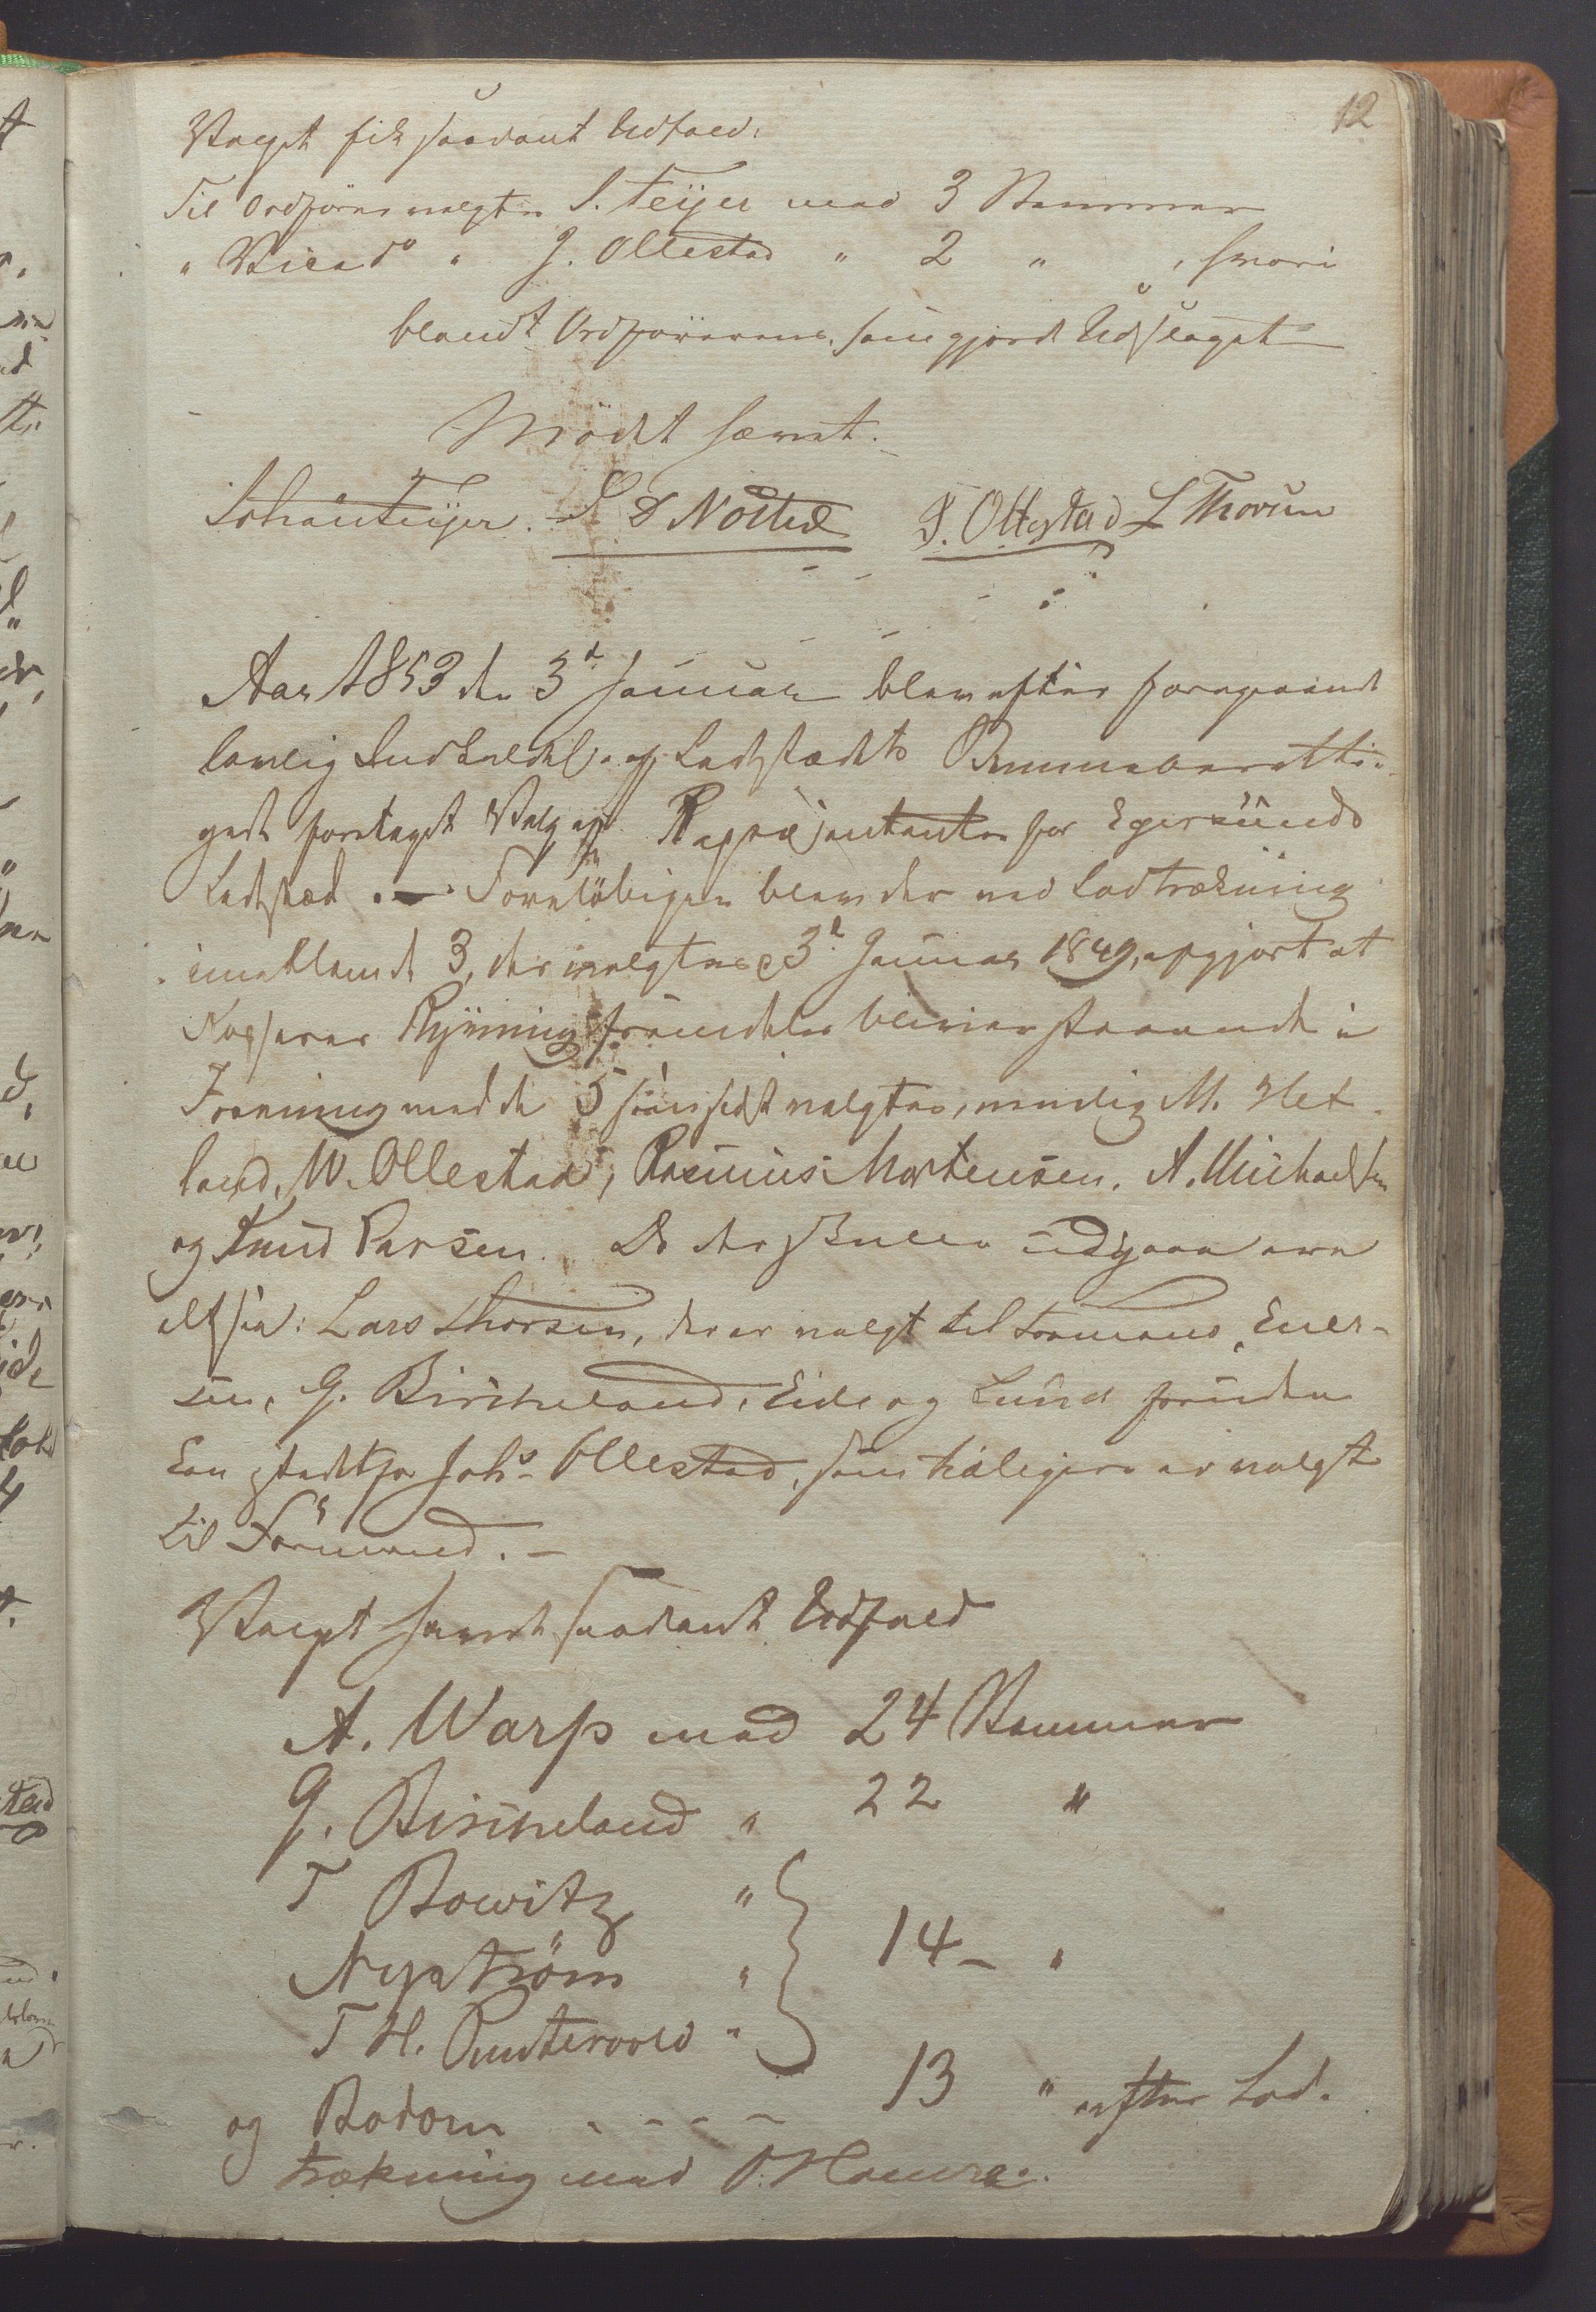 12
Valget fik saadant Udfald:
Til Ordförer valgtes S. Feÿer med 3 Stemmer
" Vicead° " J. Ollestad " 2 " , hvori
blandt Ordförerens, som gjorde Udslaget
Mödet hævet.
S D Nöttvedt J. Ollestad L Thorsen
Aar 1853 den 3d Januar blev efter foregaaende
lovlig Indkaldelse af Ladestedets Stemmeberetti-
gede foretaget Valg af Repræsentanter for Egersunds
Ladested. — Foreløbigen blev der ved Lodtrækning
imellem de 3, der valgtes 3d Januar 1849, afgjort at
Rÿning fremdeles bliver staaende i
Forening med de 5 sidst valgte, nemlig M. Het-
land, W. Ollestad, Rasmus Mortensen, A. Michaelsen
og Knud Larsen. De der skulle udgaae ere
altsaa: Lars Thorsen, der er valgt til Formand, Ener-
sen, G. Birkeland, Eide og Lund foruden
Een istedetfor Johs Ollestad, som tidligere er valgt
til Formand. —
Valget havde saadant Udfald
A. Warp med 24 Stemmer
G. Birkeland " 22 "
T Bowitz "
Nyström " 14 - "
T H. Puntervold "
og Bodom - - - - 13 " efter Lod-
trækning med O. Hamre.